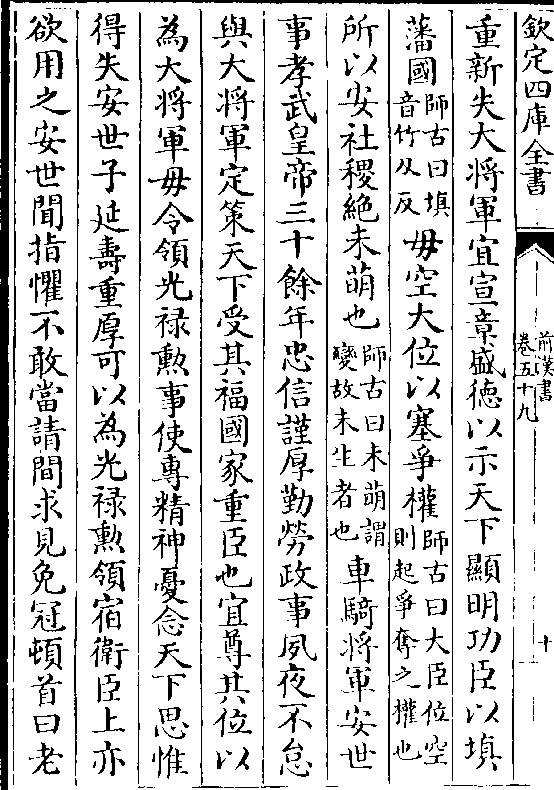 欽定四庫全書
前漢書
卷五十九
十
重新失大將軍宜宣章盛德以示天下顯明功臣以填
藩國師古曰填音竹刃反毋空大位以塞爭權師古曰大臣位空則起爭奪之權也
所以安社稷絶未萌也師古曰未萌謂變故未生者也車騎將軍安世
事孝武皇帝三十餘年忠信謹厚勤勞政事夙夜不怠
與大將軍定策天下受其福國家重臣也宜尊其位以
為大將軍毋令領光禄勲事使專精神憂念天下思惟
得失安世子延壽重厚可以為光禄勲領宿衛臣上亦
欲用之安世聞指懼不敢當請間求見免冠頓首曰老